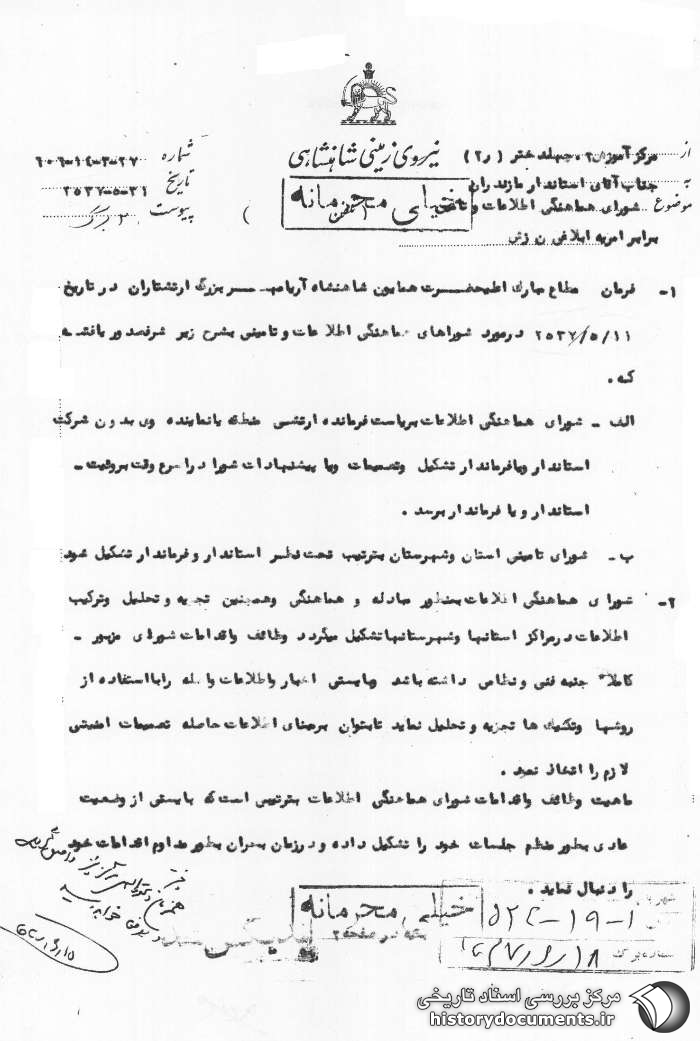 نیروی زمینی شاهنشاهی
از مرکز آموزش ۰۲ چهلدختر ( ر۲ )
به جناب آقای استاندار مازندران
موضوع شورای هماهنگی اطلاعات و تامین
شماره ۲۷-۳-۱۴-۶۰۶
تاریخ ۲۵۳۷-۵-۳۱
پیوست ۲ برگ
خیلی محرمانه
برابر امریه ابلاغی ن ز ش
۱- فرمان مطاع مبارک اعلیحضرت همایون شاهنشاه آریامهر بزرگ ارتشتاران در تاریخ
۲۵۳۷/۵/۱۱ در مورد شوراهای هماهنگی اطلاعات و تامینی بشرح زیر شرفصدور یافته
که .
الف - شورای هماهنگی اطلاعات بریاست فرمانده ارتشی منطقه یا نماینده وی بدون شرکت
استاندار و یا فرماندار تشکیل و تصمیمات و یا پیشنهادات شورا در اسرع وقت برویت -
استاندار و یا فرماندار برسد .
ب - شورای تامینی استان و شهرستان بترتیب تحت نظر استاندار و فرماندار تشکیل شود
۲- شورای هماهنگی اطلاعات بمنظور مبادله و هماهنگی و همچنین تجزیه و تحلیل و ترکیب
اطلاعات در مراکز استانها و شهرستانها تشکیل میگردد وظائف و اقدامات شورای مزبور -
کاملا" جنبه فنی و نظامی داشته باشد و بایستی اخبار و اطلاعات واصله را با استفاده از
روشها و تکنیک ها تجزیه و تحلیل نماید تا بتوان بر مبنای اطلاعات حاصله تصمیمات امنیتی
لازم را اتخاذ نمود .
ماهیت وظائف و اقدامات شورای هماهنگی اطلاعات بترتیبی است که بایستی از وضعیت
عادی بطور منظم جلسات خود را تشکیل داده و در زمان بحران بطور مداوم اقدامات خود
را دنبال نماید .
خیلی محرمانه
بقیه در صفحه ۲
۵۲۴-۱۹-۱
مرکز بررسی اسناد تاریخی
historydocuments.ir